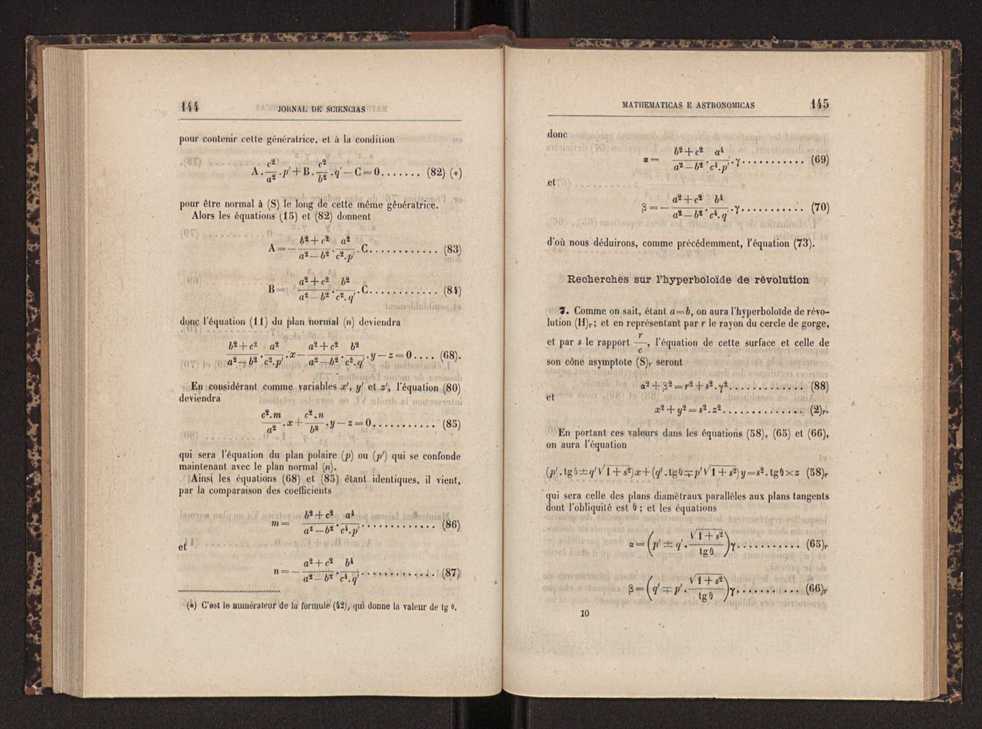 144 JORNAL DE SCIENCIAS
pour contenir cette génératrice, et à la condition
A . c²/a² . p' + B . c²/b² . q' — C = 0 . . . . . . . (82) (*)
pour être normal à (S) le long de cette même génératrice.
Alors les équations (15) et (82) donnent
A = — b² + c²/a² — b² . a²/c².p' . C . . . . . . . . . . . (83)
B = a² + c²/a² — b² . b²/c².q' . C . . . . . . . . . . . (84)
donc l'équation (11) du plan normal (n) deviendra
b² + c²/a² — b² . a²/c².p' . x — a² + c²/a² — b² . b²/c².q' . y — z = 0 . . . . (68).
En considérant comme variables x', y' et z', l'équation (80)
deviendra
c².m/a² . x + c².n/b² . y — z = 0, . . . . . . . . . . (85)
qui sera l'équation du plan polaire (p) ou (p') qui se confonde
maintenant avec le plan normal (n).
Ainsi les équations (68) et (85) étant identiques, il vient,
par la comparaison des coefficients
m = b² + c²/a² — b² . a⁴/c⁴.p' . . . . . . . . . . . . (86)
et
n = — a² + c²/a² — b² . b⁴/c⁴.q' . . . . . . . . . . . . (87)
(*) C'est le numérateur de la formule (42), qui donne la valeur de tg θ.
MATHEMATICAS E ASTRONOMICAS 145
donc
α = b² + c²/a² — b² . a⁴/c⁴.p' . γ . . . . . . . . . . . (69)
et
β = — a² + c²/a² — b² . b⁴/c⁴.q' . γ . . . . . . . . . . . (70)
d'où nous déduirons, comme précédemment, l'équation (73).
Recherches sur l'hyperboloïde de révolution
7. Comme on sait, étant a = b, on aura l'hyperboloïde de révo-
lution (H)ᵣ; et en représentant par r le rayon du cercle de gorge,
et par s le rapport r/c, l'équation de cette surface et celle de
son cône asymptote (S)ᵣ seront
α² + β² = r² + s² . γ² . . . . . . . . . . . . (88)
et
x² + y² = s² . z² . . . . . . . . . . . . . . (2)ᵣ.
En portant ces valeurs dans les équations (58), (65) et (66),
on aura l'équation
(p' . tg θ ± q' √1 + s²) x + (q' . tg θ ∓ p' √1 + s²) y = s² . tg θ × z (58)ᵣ
qui sera celle des plans diamétraux parallèles aux plans tangents
dont l'obliquité est θ ; et les équations
α = (p' ± q' . √1 + s²/tg θ) γ . . . . . . . . . . . (65)ᵣ
β = (q' ∓ p' . √1 + s²/tg θ) γ . . . . . . . . . . . (66)ᵣ
10